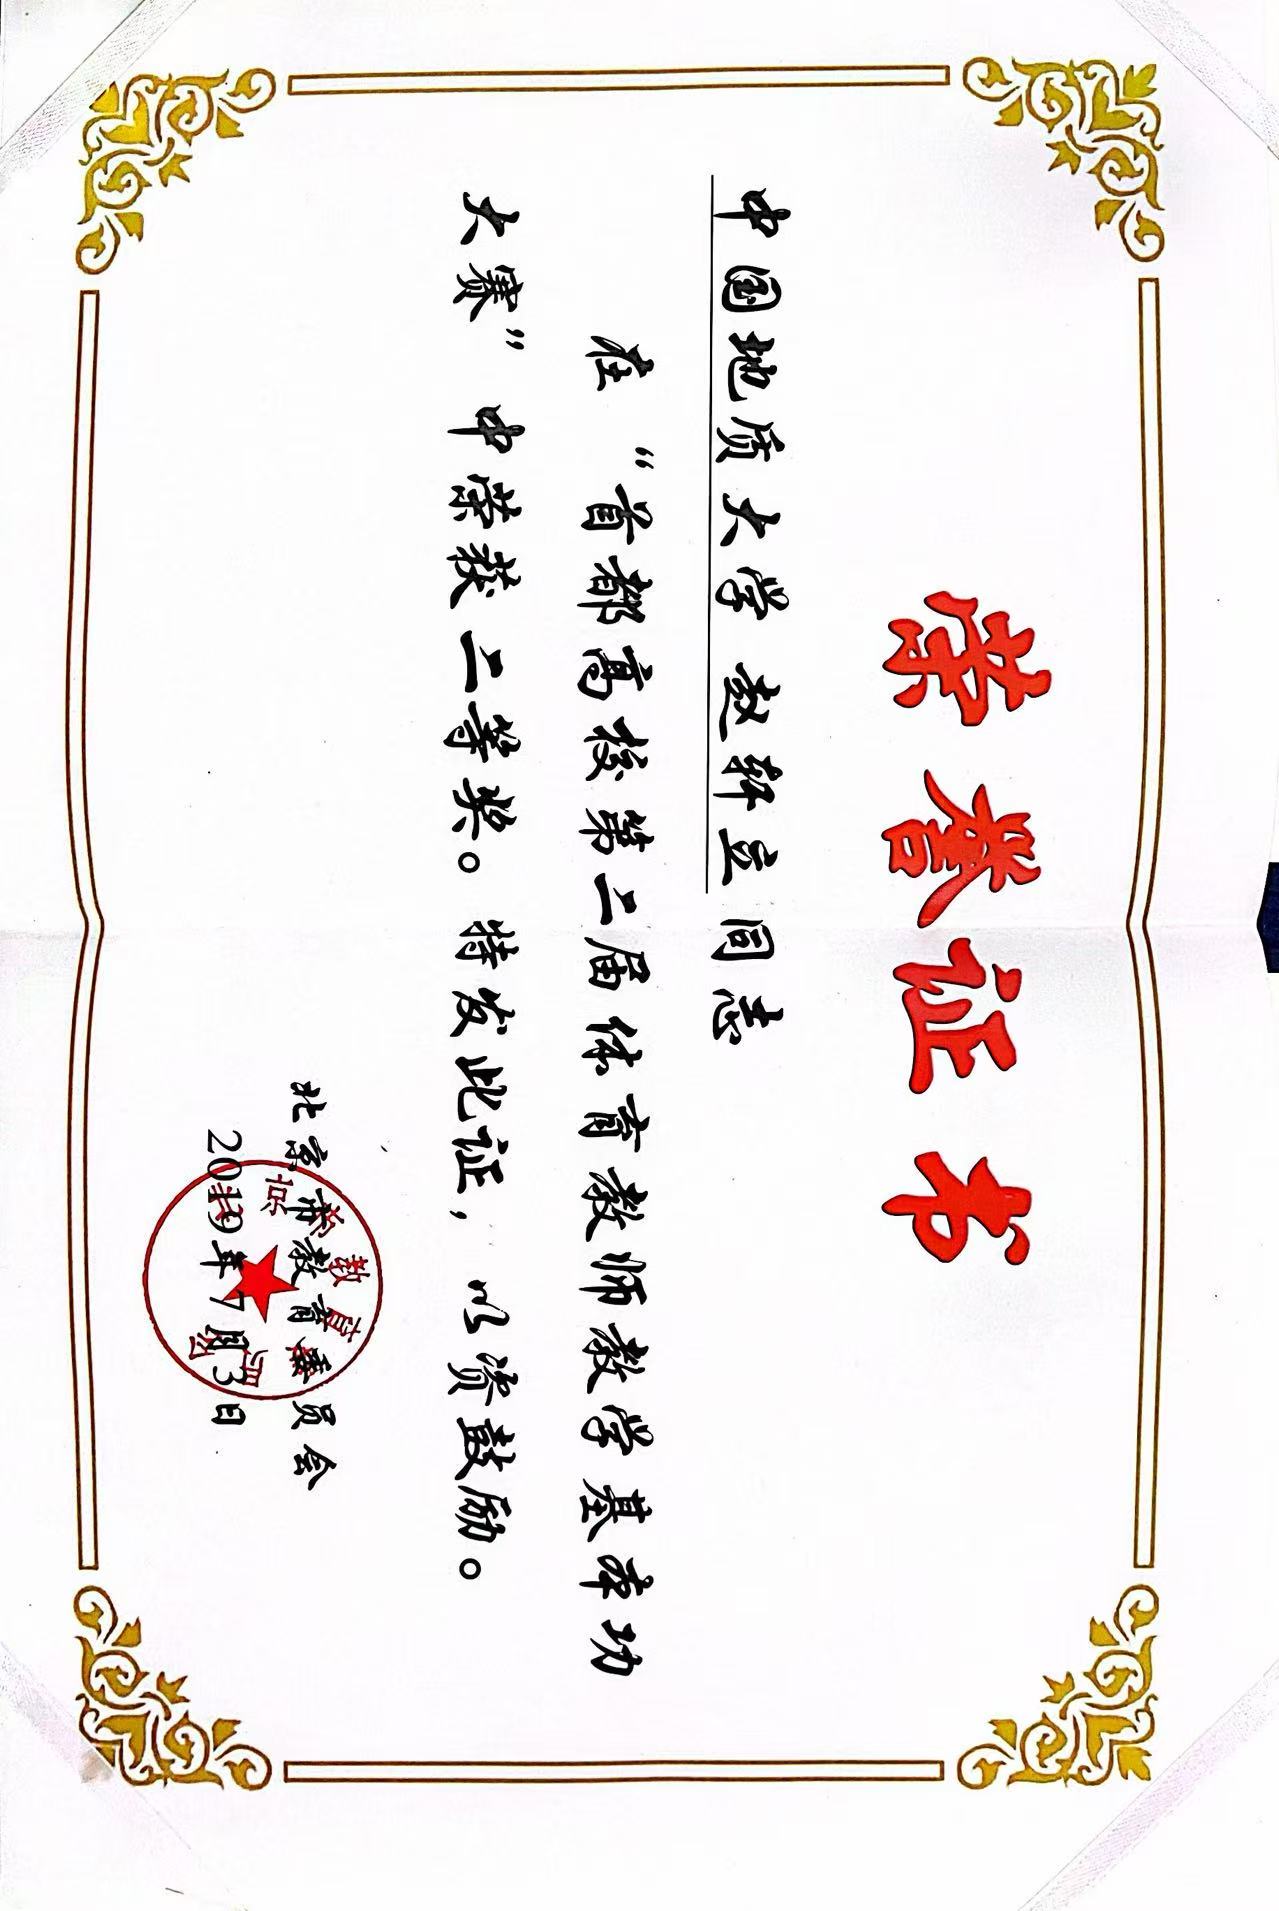 荣誉证书
中国地质大学 赵轩立同志
在“首都高校第二届体育教师教学基本功
大赛”中荣获二等奖。特发此证，以资鼓励。
北京市教育委员会
2019年7月3日